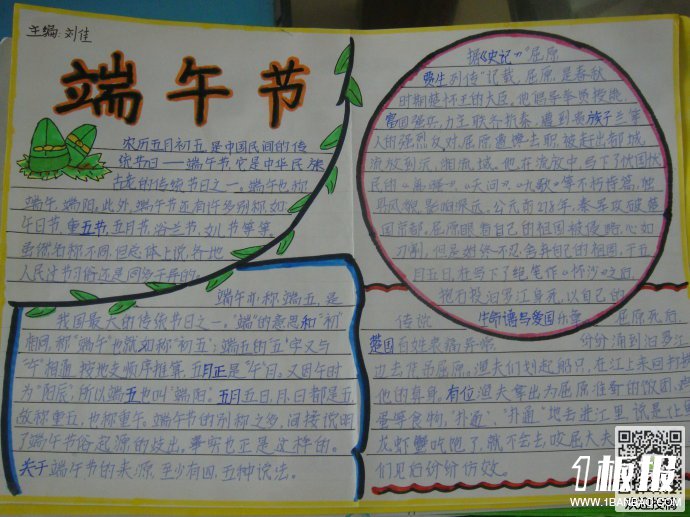 主编:刘佳
端午节
农历五月初五,是中国民间的传
统节日——端午节,它是中华民族
古老的传统节日之一。端午也称
端午,端阳。此外,端午节还有许多别称,如:
午日节,重五节,五月节,浴兰节,女儿节等等。
虽然名称不同,但总体上说,各地
人民过节习俗还是同多于异的。
端午亦称端五,是
我国最大的传统节日之一,"端"的意思和"初"
相同,称"端午"也就如称"初五";端五的"五"字又与
"午"相通,按地支顺序推算,五月正是"午"月。又因午时
为"阳辰",所以端五也叫"端阳"。五月五日,月、日都是五,
故称重五,也称重午。端午节的别称之多,间接说明
了端午节俗起源的歧出。事实也正是这样的。
关于端午节的来源,至少有四、五种说法。
据《史记》"屈原
贾生列传"记载,屈原,是春秋
时期楚怀王的大臣。他倡导举贤授能,
富国强兵,力主联齐抗秦,遭到贵族子兰等
人的强烈反对,屈原遭馋去职,被赶出都城,
流放到沅、湘流域。他在流放中,写下了忧国忧
民的《离骚》、《天问》、《九歌》等不朽诗篇,独
具风貌,影响深远。公元前278年,秦军攻破楚
国京都。屈原眼看自己的祖国被侵略,心如
刀割,但是始终不忍舍弃自己的祖国,于五
月五日,在写下了绝笔作《怀沙》之后,
抱石投汨罗江身死,以自己的
传说 屈原死后,
楚国百姓哀痛异常 纷纷涌到汨罗江
边去凭吊屈原。渔夫们划起船只,在江上来回打捞
他的真身。有位渔夫拿出为屈原准备的饭团、鸡
蛋等食物,"扑通、扑通"地去进江里,说是让鱼
龙虾蟹吃饱了,就不会去咬屈大夫
们见后纷纷仿效。
1板报
WWW.1BANBAO.COM